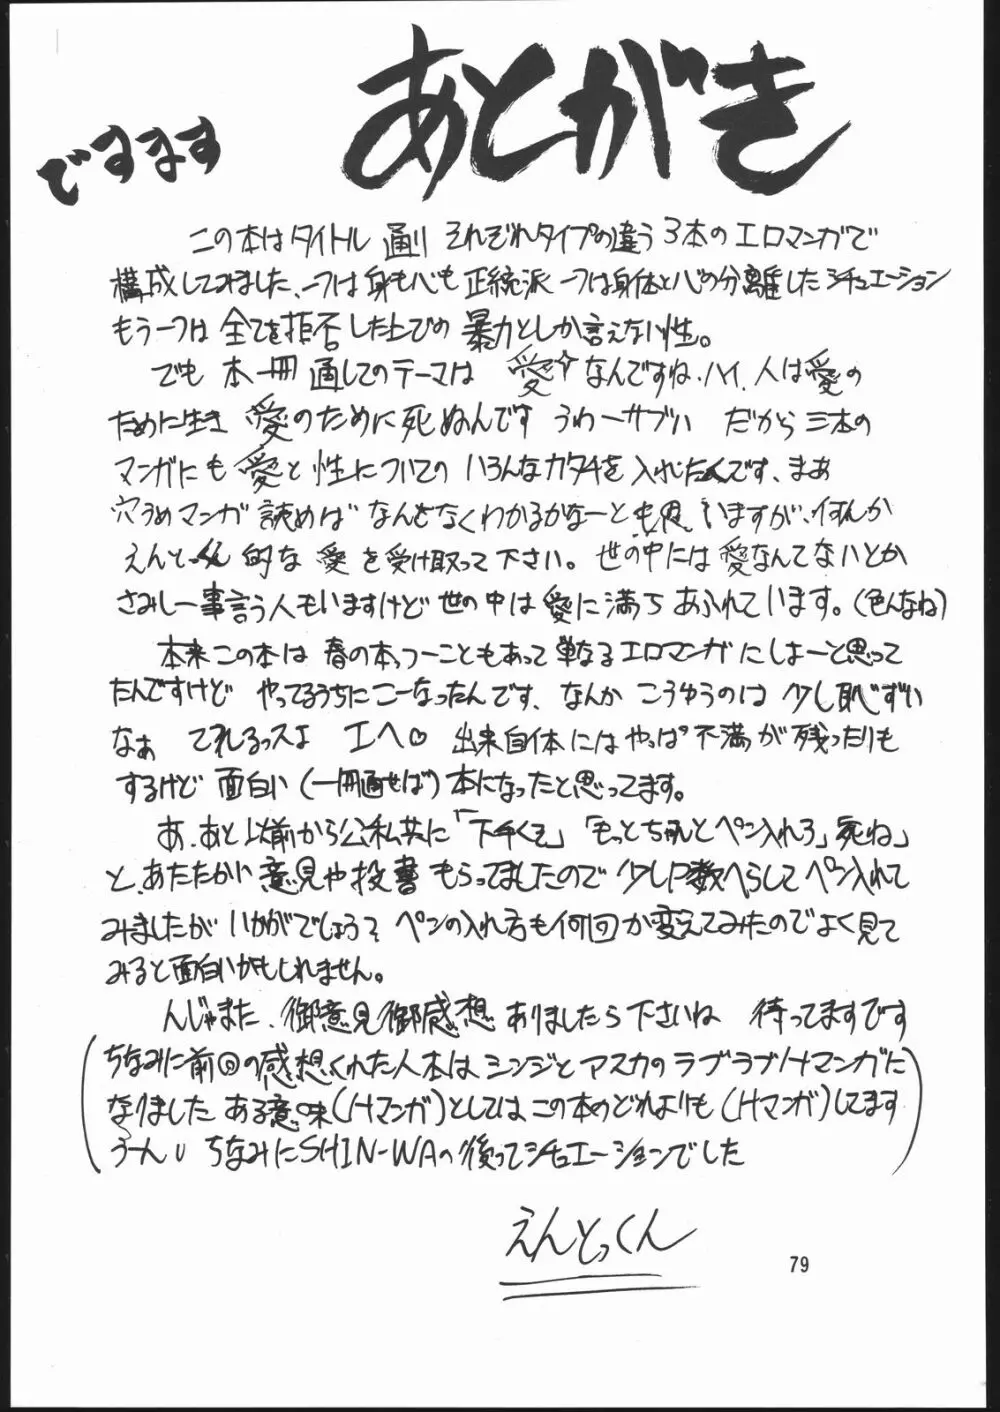 あとがき
ですます
この本はタイトル通りそれぞれタイプの違う3本のエロマンガで
構成してみました、一つは身も心も正統派 一つは身体と心の分離したシチュエーション
もう一つは全てを拒否した上での暴力としか言えない性。
でも本一冊通してのテーマは愛☆なんですね、ハイ、人は愛の
ために生き愛のために死ぬんです うわーサブい だから三本の
マンガにも愛と性についてのいろんなカタチを入れたんです、まぁ
穴うめマンガ読めばなんとなくわかるかなーとも思いますが、何んか
えんとっくん的な愛を受け取って下さい。世の中には愛なんてないとか
さみしー事言う人もいますけど世の中は愛に満ちあふれています。(色んなね)
本来この本は春の本っつーこともあって単なるエロマンガにしよーと思って
たんですけど やってるうちにこーなったんです、なんかこうゆうのは少し恥ずい
なぁ てれるっスよ エヘ♡ 出来自体にはやっぱ不満が残ったりも
するけど面白い(一冊通せば)本になったと思ってます。
あ、あと以前から公私共に「下手くそ」「もっとちゃんとペン入れろ」「死ね」
と、あたたかい意見や投書もらってましたので少しP数へらしてペン入れて
みましたがいかがでしょう? ペンの入れ方も何回か変えてみたのでよく見て
みると面白いかもしれません。
んじゃまた、御意見御感想ありましたら下さいね 待ってますです
(ちなみに前回の感想くれた人本はシンジとアスカのラブラブHマンガに
なりました ある意味(Hマンガ)としてはこの本のどれよりも(Hマンガ)してます
うーん ちなみにSHIN-WAの後ってシチュエーションでした)
えんとっくん
79